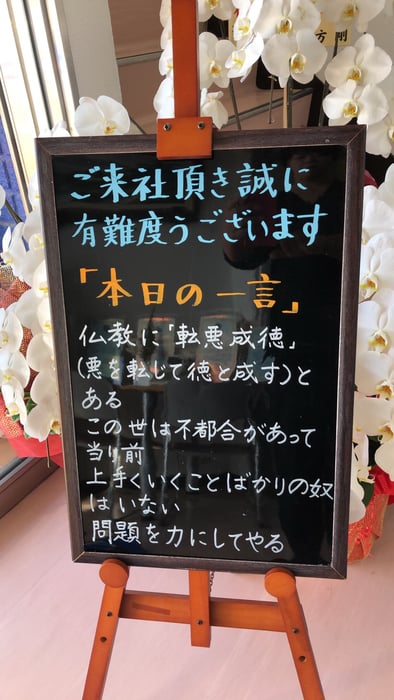 方 剛
ご来社頂き誠に
有難度うございます
「本日の一言」
仏教に「転悪成徳」
(悪を転じて徳と成す)と
ある
この世は不都合があって
当り前
上手くいくことばかりの奴
はいない
問題を力にしてやる